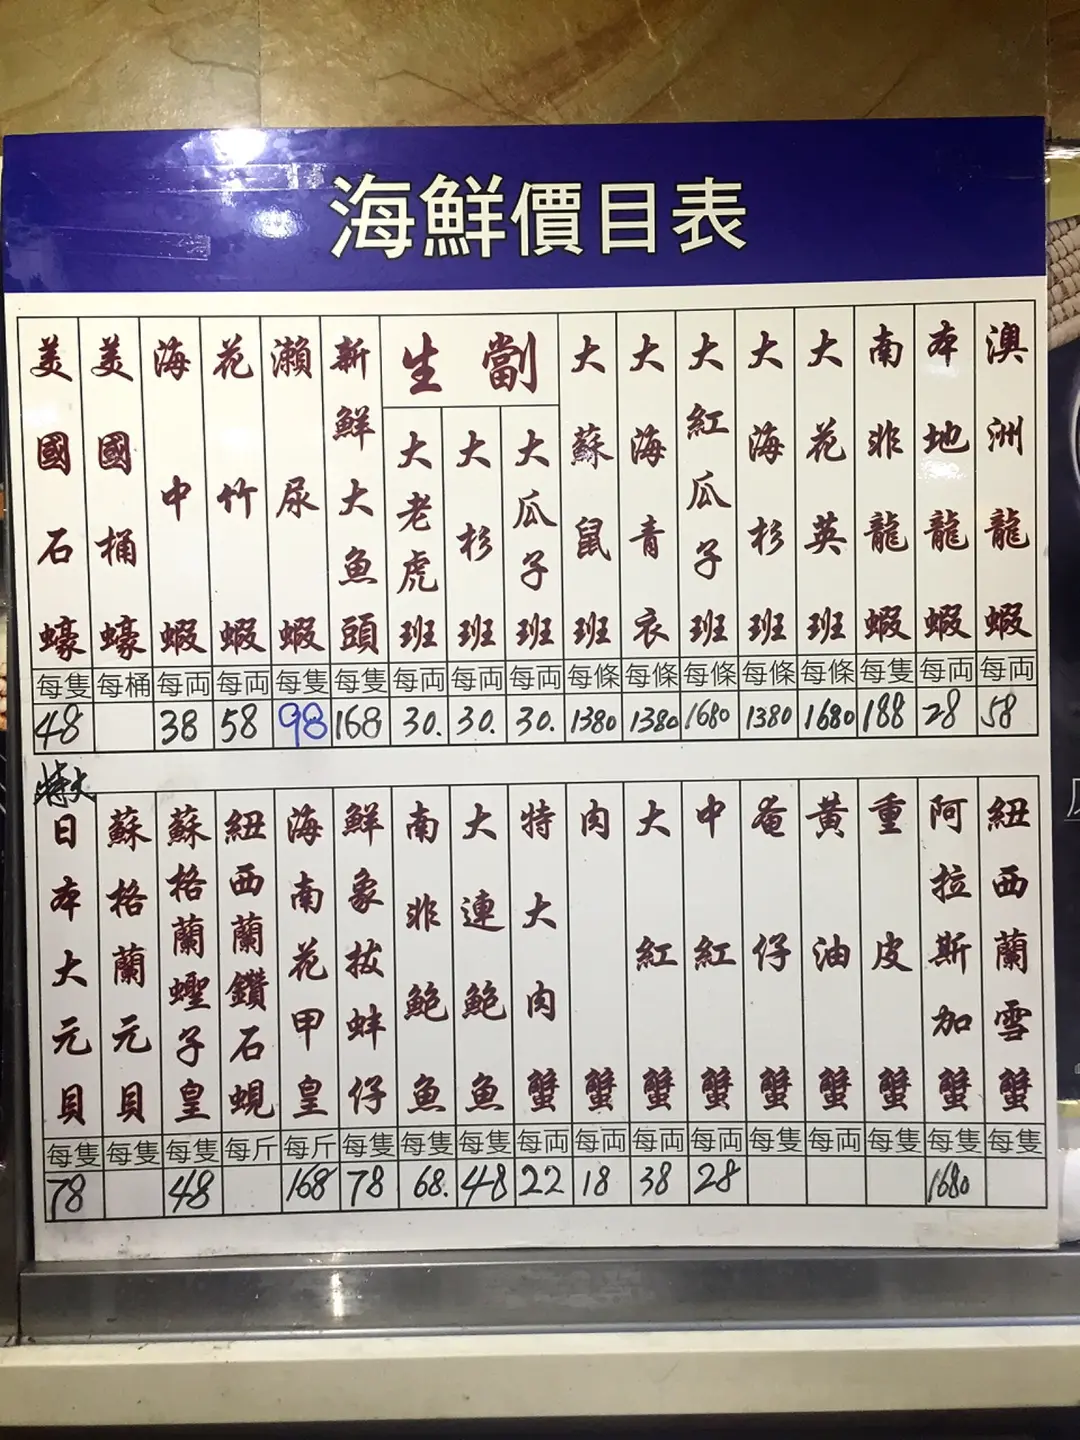 海鮮價目表
澳洲龍蝦 每両 58
本地龍蝦 每両 28
南非龍蝦 每隻 188
大花英班 每條 1680
大海杉班 每條 1380
大紅瓜子班 每條 1680
大海青衣 每條 1380
大蘇鼠班 每條 1380
生劏
大瓜子班 每両 30.
大杉班 每両 30.
大老虎班 每両 30.
新鮮大魚頭 每隻 168
瀨尿蝦 每隻 98
花竹蝦 每両 58
海中蝦 每両 38
美國桶蠔 每桶
美國石蠔 每隻 48
紐西蘭雪蟹 每隻
阿拉斯加蟹 每隻 1680
重皮蟹 每隻
黃油蟹 每両
奄仔蟹 每両
中紅蟹 每両 28
大紅蟹 每両 38
肉蟹 每両 18
特大肉蟹 每両 22
大連鮑魚 每隻 48
南非鮑魚 每隻 68.
鮮象拔蚌仔 每隻 78
海南花甲皇 每斤 168
紐西蘭鑽石蜆 每斤
蘇格蘭蟶子皇 每隻 48
蘇格蘭元貝 每隻
特大
日本大元貝 每隻 78